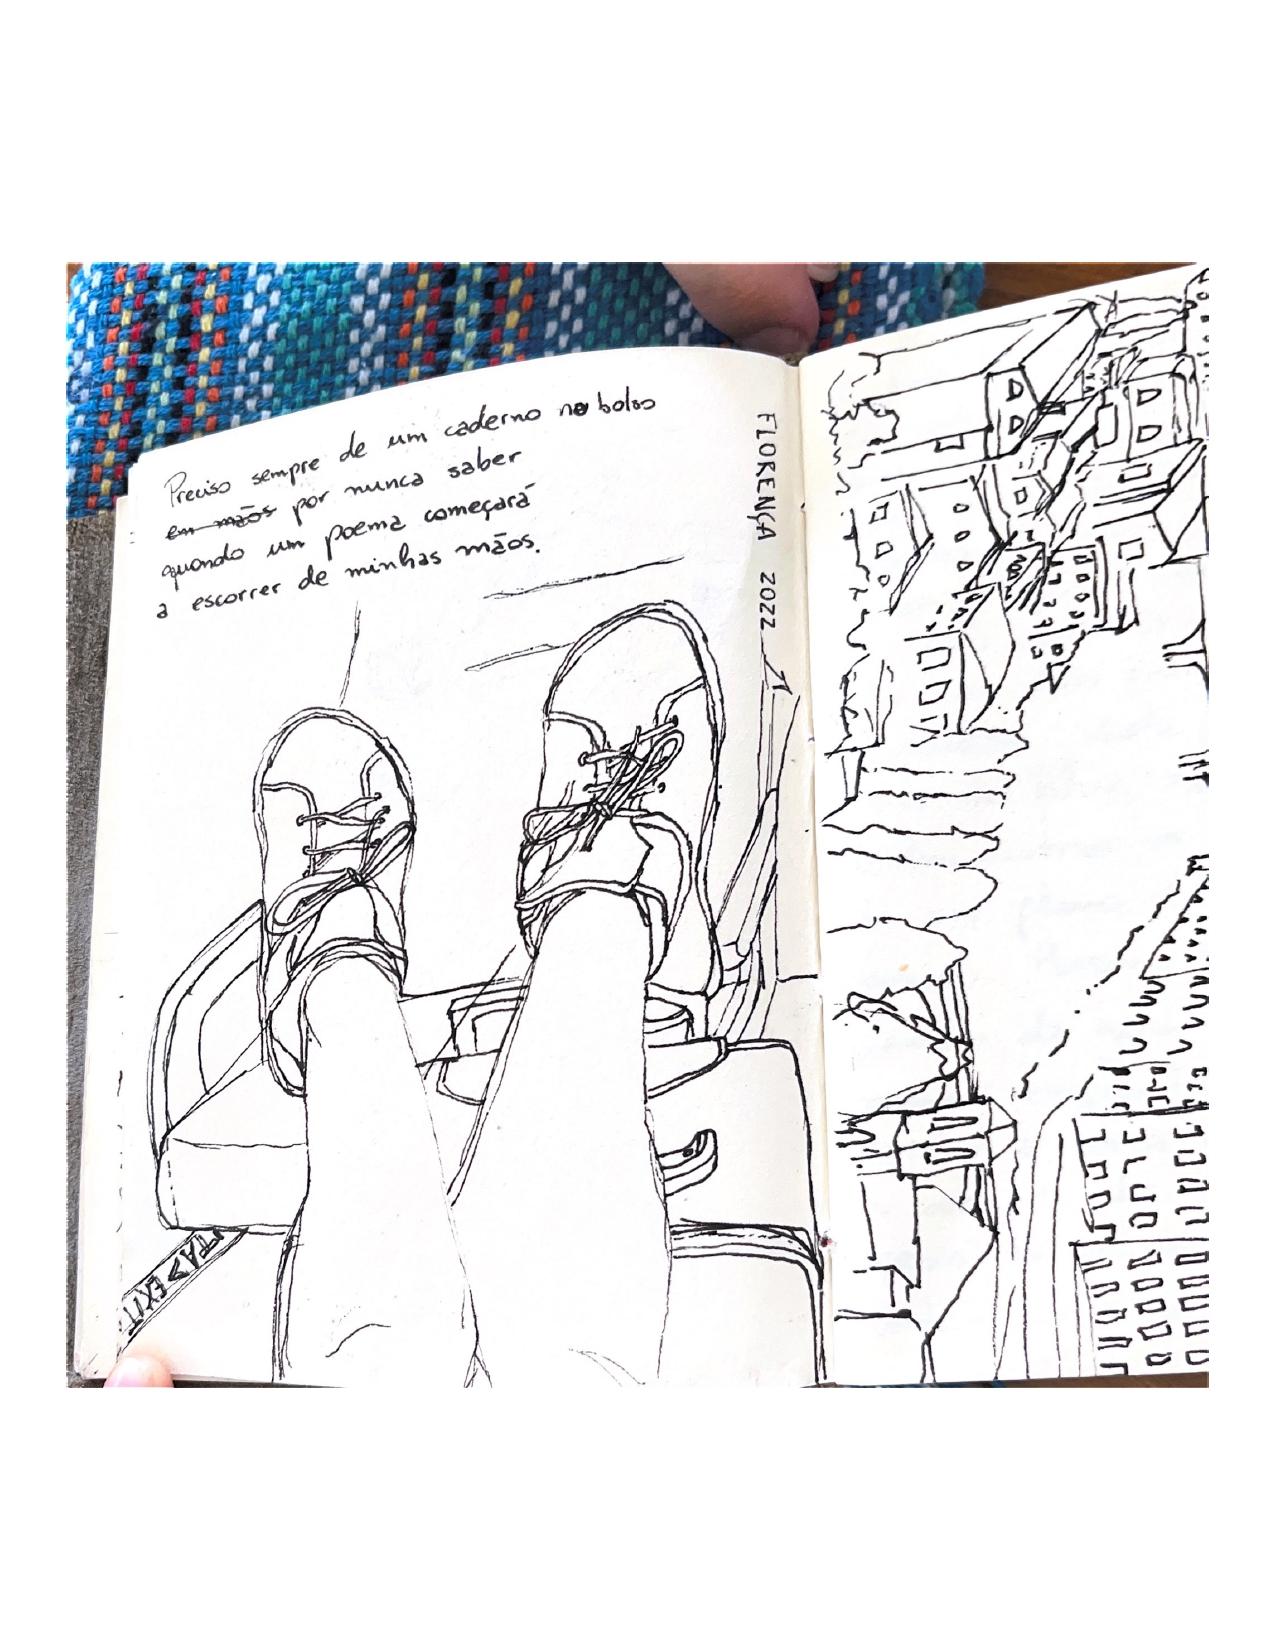 Preciso sempre de um caderno no bolso
em mãos por nunca saber
quando um poema começará
a escorrer de minhas mãos.
FLORENÇA 2022
TA> EXIT